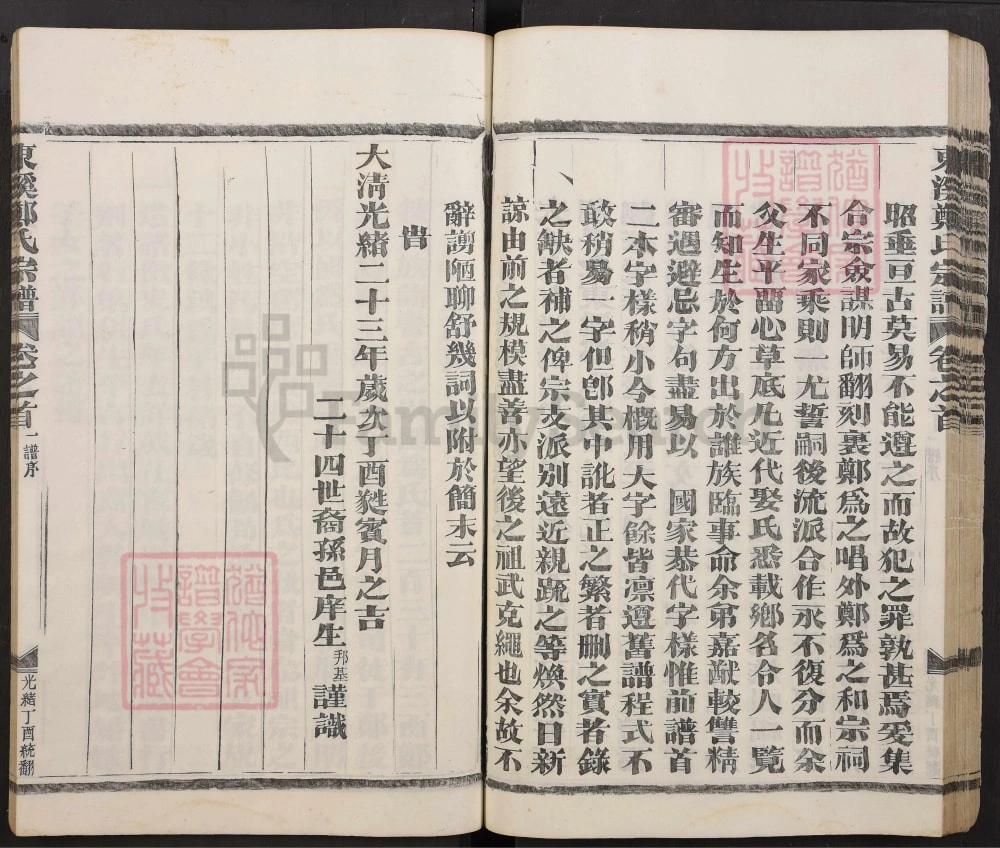 東溪鄭氏宗譜 卷之首
昭垂亘古莫易不能遵之而故犯之罪孰甚焉爰集
合宗僉謀明師翻刻裏鄭爲之唱外鄭爲之和宗祠
不同家乘則一尤誓嗣後流派合作永不復分而余
父生平畱心草底凡近代娶氏悉載鄉名令人一覽
而知生於何方出於誰族臨事命余弟嘉猷較讐精
審遇避忌字句盡易以 國家恭代字樣惟前譜首
二本字樣稍小今概用大字餘皆凛遵舊譜程式不
敢稍易一字但卽其中訛者正之繁者刪之實者錄
之缺者補之俾宗支派別遠近親疏之等煥然日新
諒由前之規模盡善亦望後之祖武克繩也余故不
辭謭陋聊舒幾詞以附於簡末云
旹
大清光緖二十三年歲次丁酉蕤賓月之吉
二十四世裔孫邑庠生邦基謹識
東溪鄭氏宗譜 卷之首 一譜序
光緖丁酉統翻
譜學會
收藏
FamilySearch